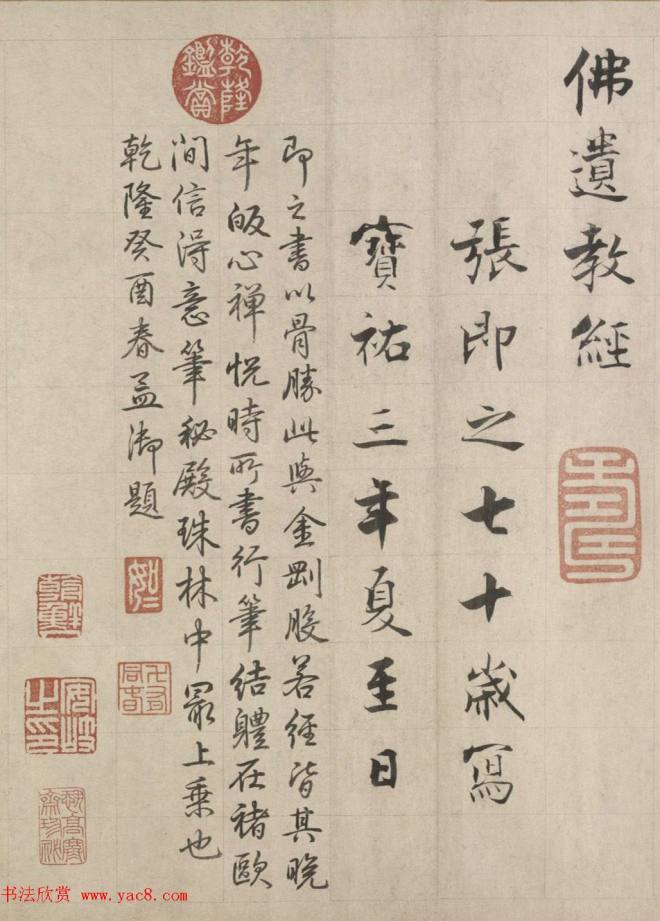 佛遺教經
張即之七十歲寫
寶祐三年夏至日
即之書以骨勝此與金剛般若經皆其晚
年皈心禅悦時所書行筆結體在褚歐
間信得意筆秘殿珠林中最上乘也
乾隆癸酉春孟御題
乾隆鑑賞
安岐之印
书法欣赏 www.yac8.com